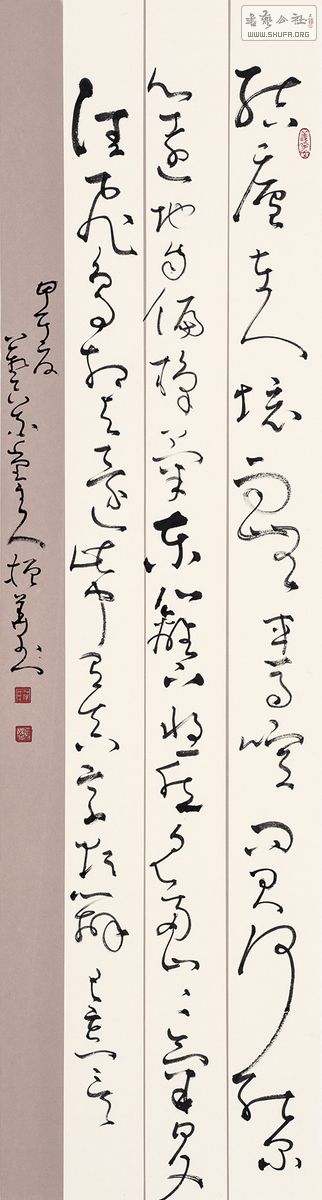 結廬在人境而無車馬喧問君何能尔
心遠地自偏採菊東籬下悠然見南山〻氣日夕
佳飛鳥相與還此中有真意欲辯已忘言
甲午夏
書藝公社
WWW.SHUFA.ORG